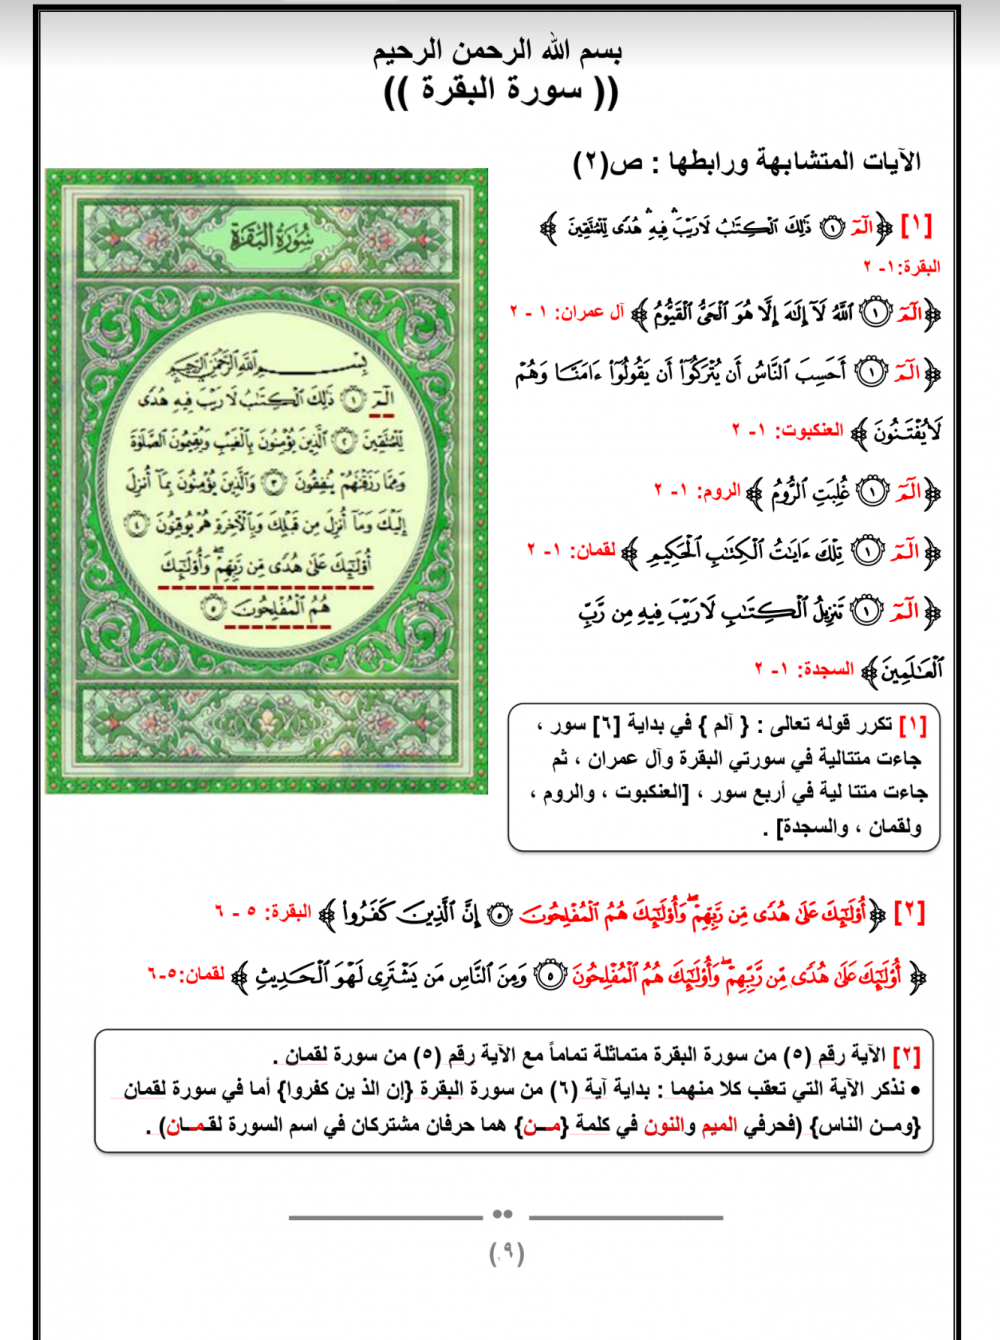 بسم الله الرحمن الرحيم
(( سورة البقرة ))
الآيات المتشابهة ورابطها : ص(٢)
[١] ﴿ الٓمٓ ١ ذَٰلِكَ ٱلْكِتَٰبُ لَا رَيْبَ ۛ فِيهِ ۛ هُدًى لِّلْمُتَّقِينَ ﴾
البقرة:١- ٢
﴿ الٓمٓ ١ ٱللَّهُ لَآ إِلَٰهَ إِلَّا هُوَ ٱلْحَىُّ ٱلْقَيُّومُ ﴾ آل عمران: ١ - ٢
﴿ الٓمٓ ١ أَحَسِبَ ٱلنَّاسُ أَن يُتْرَكُوٓا۟ أَن يَقُولُوٓا۟ ءَامَنَّا وَهُمْ
لَا يُفْتَنُونَ ﴾ العنكبوت: ١- ٢
﴿ الٓمٓ ١ غُلِبَتِ ٱلرُّومُ ﴾ الروم: ١- ٢
﴿ الٓمٓ ١ تِلْكَ ءَايَٰتُ ٱلْكِتَٰبِ ٱلْحَكِيمِ ﴾ لقمان: ١- ٢
﴿ الٓمٓ ١ تَنزِيلُ ٱلْكِتَٰبِ لَا رَيْبَ فِيهِ مِن رَّبِّ
ٱلْعَٰلَمِينَ ﴾ السجدة: ١- ٢
[١] تكرر قوله تعالى : { آلم } في بداية [٦] سور ،
جاءت متتالية في سورتي البقرة وآل عمران ، ثم
جاءت متتا لية في أربع سور ، [العنكبوت ، والروم ،
ولقمان ، والسجدة] .
سُورَةُ البَقَرَةِ
بِسْمِ ٱللَّهِ ٱلرَّحْمَٰنِ ٱلرَّحِيمِ
الٓمٓ ١ ذَٰلِكَ ٱلْكِتَٰبُ لَا رَيْبَ فِيهِ هُدًى
لِّلْمُتَّقِينَ ٢ ٱلَّذِينَ يُؤْمِنُونَ بِٱلْغَيْبِ وَيُقِيمُونَ ٱلصَّلَوٰةَ
وَمِمَّا رَزَقْنَٰهُمْ يُنفِقُونَ ٣ وَٱلَّذِينَ يُؤْمِنُونَ بِمَآ أُنزِلَ
إِلَيْكَ وَمَآ أُنزِلَ مِن قَبْلِكَ وَبِٱلْءَاخِرَةِ هُمْ يُوقِنُونَ ٤
أُو۟لَٰٓئِكَ عَلَىٰ هُدًى مِّن رَّبِّهِمْ ۖ وَأُو۟لَٰٓئِكَ
هُمُ ٱلْمُفْلِحُونَ ٥
[٢] ﴿ أُو۟لَٰٓئِكَ عَلَىٰ هُدًى مِّن رَّبِّهِمْ ۖ وَأُو۟لَٰٓئِكَ هُمُ ٱلْمُفْلِحُونَ ٥ إِنَّ ٱلَّذِينَ كَفَرُوا۟ ﴾ البقرة: ٥ - ٦
﴿ أُو۟لَٰٓئِكَ عَلَىٰ هُدًى مِّن رَّبِّهِمْ ۖ وَأُو۟لَٰٓئِكَ هُمُ ٱلْمُفْلِحُونَ ٥ وَمِنَ ٱلنَّاسِ مَن يَشْتَرِى لَهْوَ ٱلْحَدِيثِ ﴾ لقمان:٥-٦
[٢] الآية رقم (٥) من سورة البقرة متماثلة تماماً مع الآية رقم (٥) من سورة لقمان .
• نذكر الآية التي تعقب كلا منهما : بداية آية (٦) من سورة البقرة {إن الذ ين كفروا} أما في سورة لقمان
{ومـن الناس} (فحرفي الميم والنون في كلمة {مــن} هما حرفان مشتركان في اسم السورة لقـمـان) .
(٩)